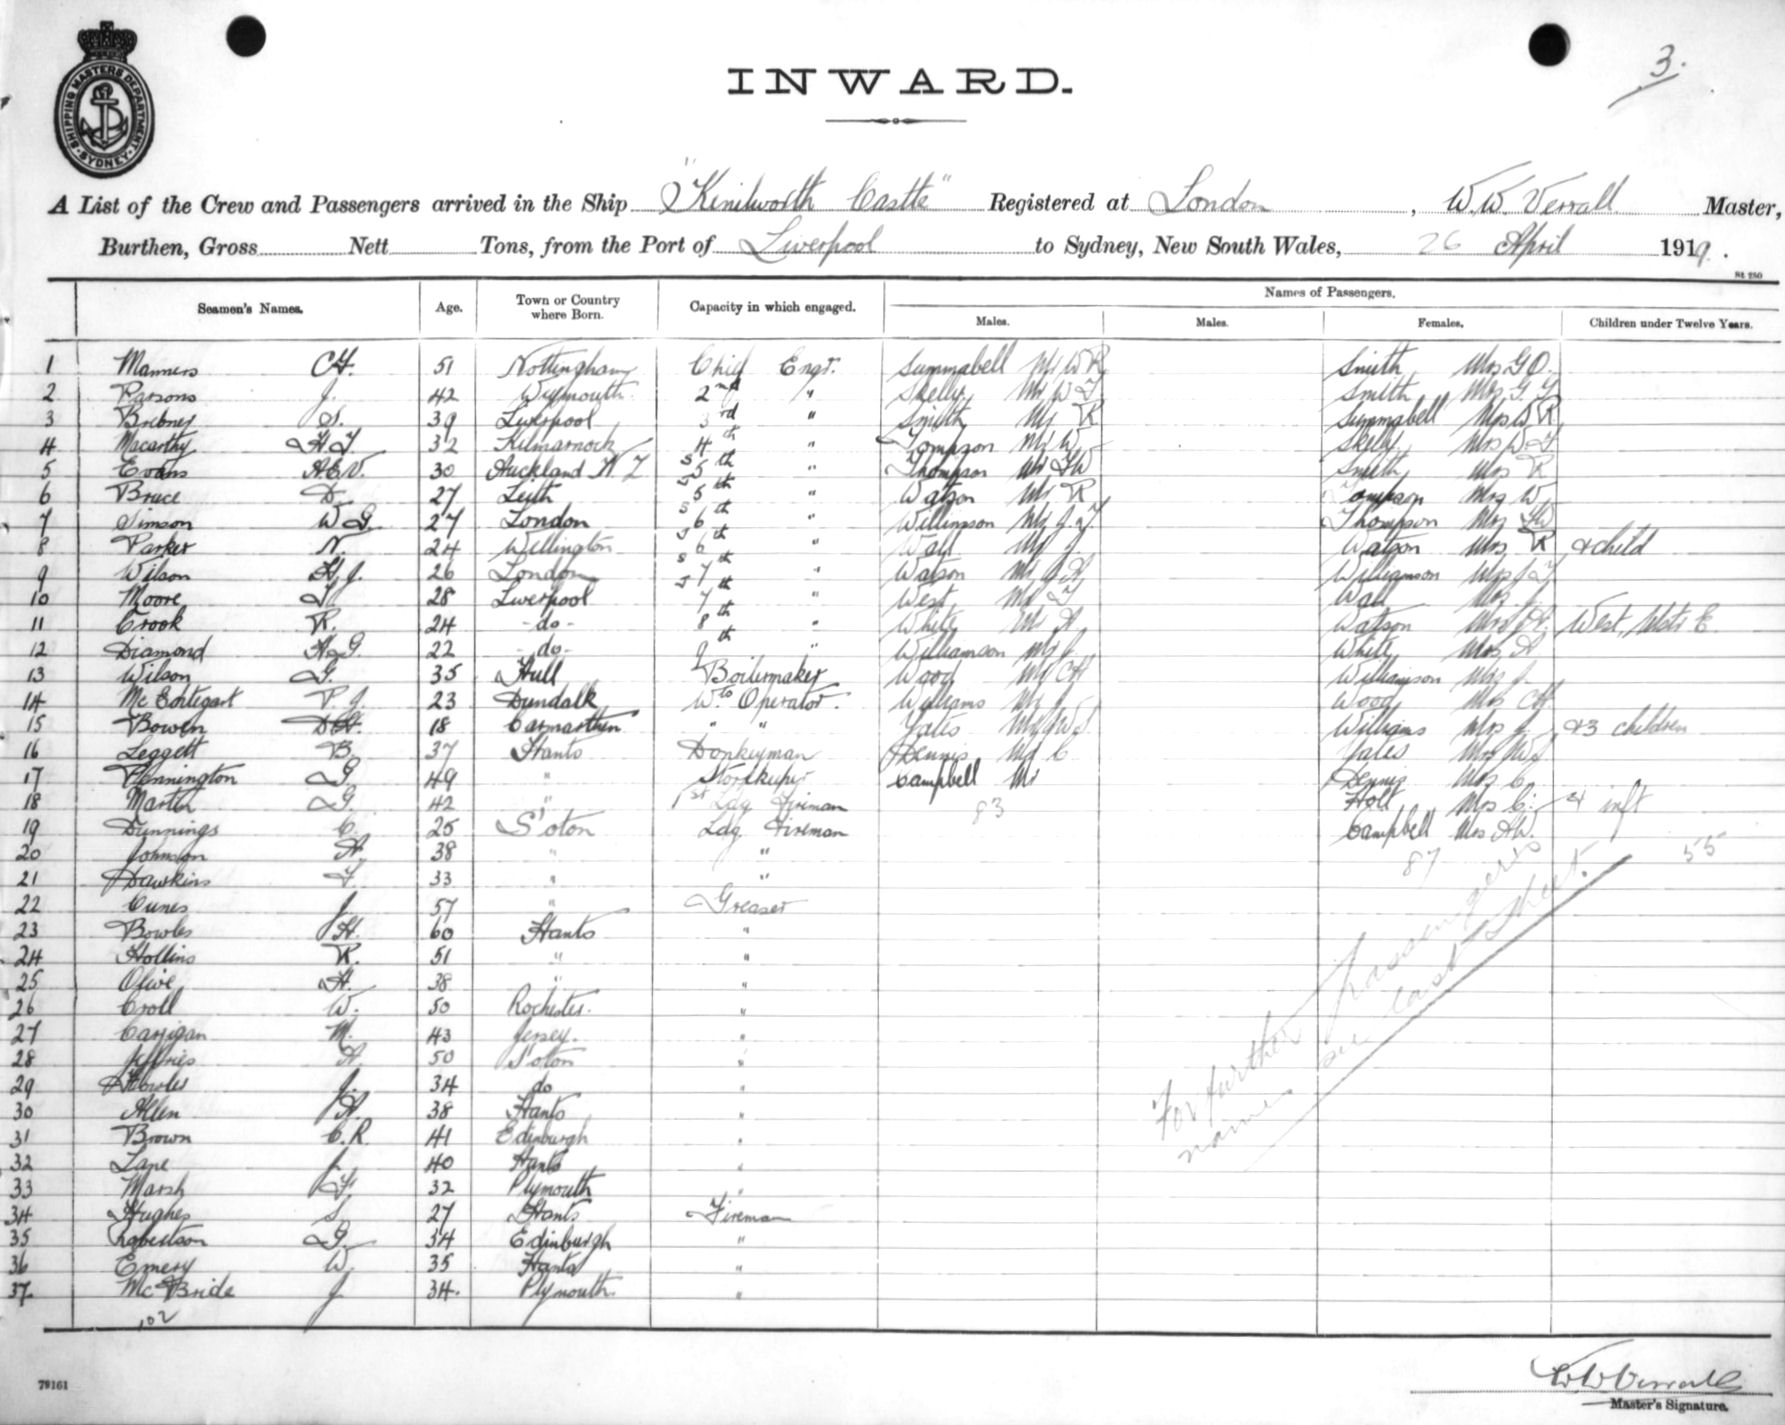 3.
SHIPPING MASTERS DEPARTMENT
SYDNEY
INWARD.
A List of the Crew and Passengers arrived in the Ship "Kenilworth Castle" Registered at London, W. W. Verrall Master,
Burthen, Gross Nett Tons, from the Port of Liverpool to Sydney, New South Wales, 26 April 1919.
St 250
Seamen's Names. Age. Town or Country where Born. Capacity in which engaged. Names of Passengers.
Males. Males. Females. Children under Twelve Years.
1 Manners CH. 51 Nottingham Chief Engr. Summabell Mr W R Smith Mrs G O.
2 Parsons J. 42 Weymouth 2nd " Skelly Mr W J Smith Mrs G Y
3 Brebner S. 39 Liverpool 3rd " Smith Mr R Summabell Mrs W R
4 Macarthy H J. 32 Kilmarnock 4th " Tompson Mr W Skelly Mrs W J
5 Evans A E V. 30 Auckland N Z S 5th " Thompson Mr Smith Mrs R
6 Bruce D. 27 Leith J 5th " Watson Mr R Tompson Mrs W
7 Simson W G. 27 London S 6th " Williamson Mr J. Thompson Mrs
8 Parker N. 24 Wellington J 6th " Wall Mr J. Watson Mrs R & child
9 Wilson H. J. 26 London S 7th " Watson Mr J H Williamson Mrs J
10 Moore 28 Liverpool J 7th " West Mr Wall Mrs J.
11 Crook R. 24 -do- 8th " White Mr A. Watson Mrs West, Mstr E.
12 Diamond H G. 22 -do- 9th " Williamson Mr J. White Mrs A
13 Wilson G. 35 Hull Boilermaker Wood Mr CH Williamson Mrs J.
14 Mc Entegart P. J. 23 Dundalk Wls Operator. Williams Mr J Wood Mrs CH
15 Bowen D H. 18 Carmarthen " " Yates Mr J W Williams Mrs J & 3 children
16 Leggett B. 37 Hants Donkeyman Dennis Mr C Yates Mrs J W
17 Pennington G. 49 " Storekeeper Campbell Mr Dennis Mrs C.
18 Martin G. 42 " 1st Ldg Fireman 83 Holt Mrs C. & inft
19 Dunnings C. 25 S'oton Ldg. Fireman Campbell Mrs A W.
20 Johnson A. 38 " " 87 55
21 Dawkins F 33 " "
22 Cunes J. 57 " Greaser
23 Bowles H. 60 Hants "
24 Hollins R. 51 " "
25 Olive H. 38 " "
26 Croll W. 50 Rochester. "
27 Carrigan M. 43 Jersey. "
28 Jeffries A. 50 S'oton "
29 J. 34 do "
30 Allen A. 38 Hants "
31 Brown C. R. 41 Edinburgh "
32 Lane J. 40 Hants "
33 Marsh F. 32 Plymouth "
34 Hughes S. 27 Hants Fireman
35 Robertson G. 34 Edinburgh "
36 Emery W. 35 Hants "
37. Mc Bride J 34. Plymouth. "
102
For further passengers
names see last sheet.
W W Verrall
Master's Signature.
79161